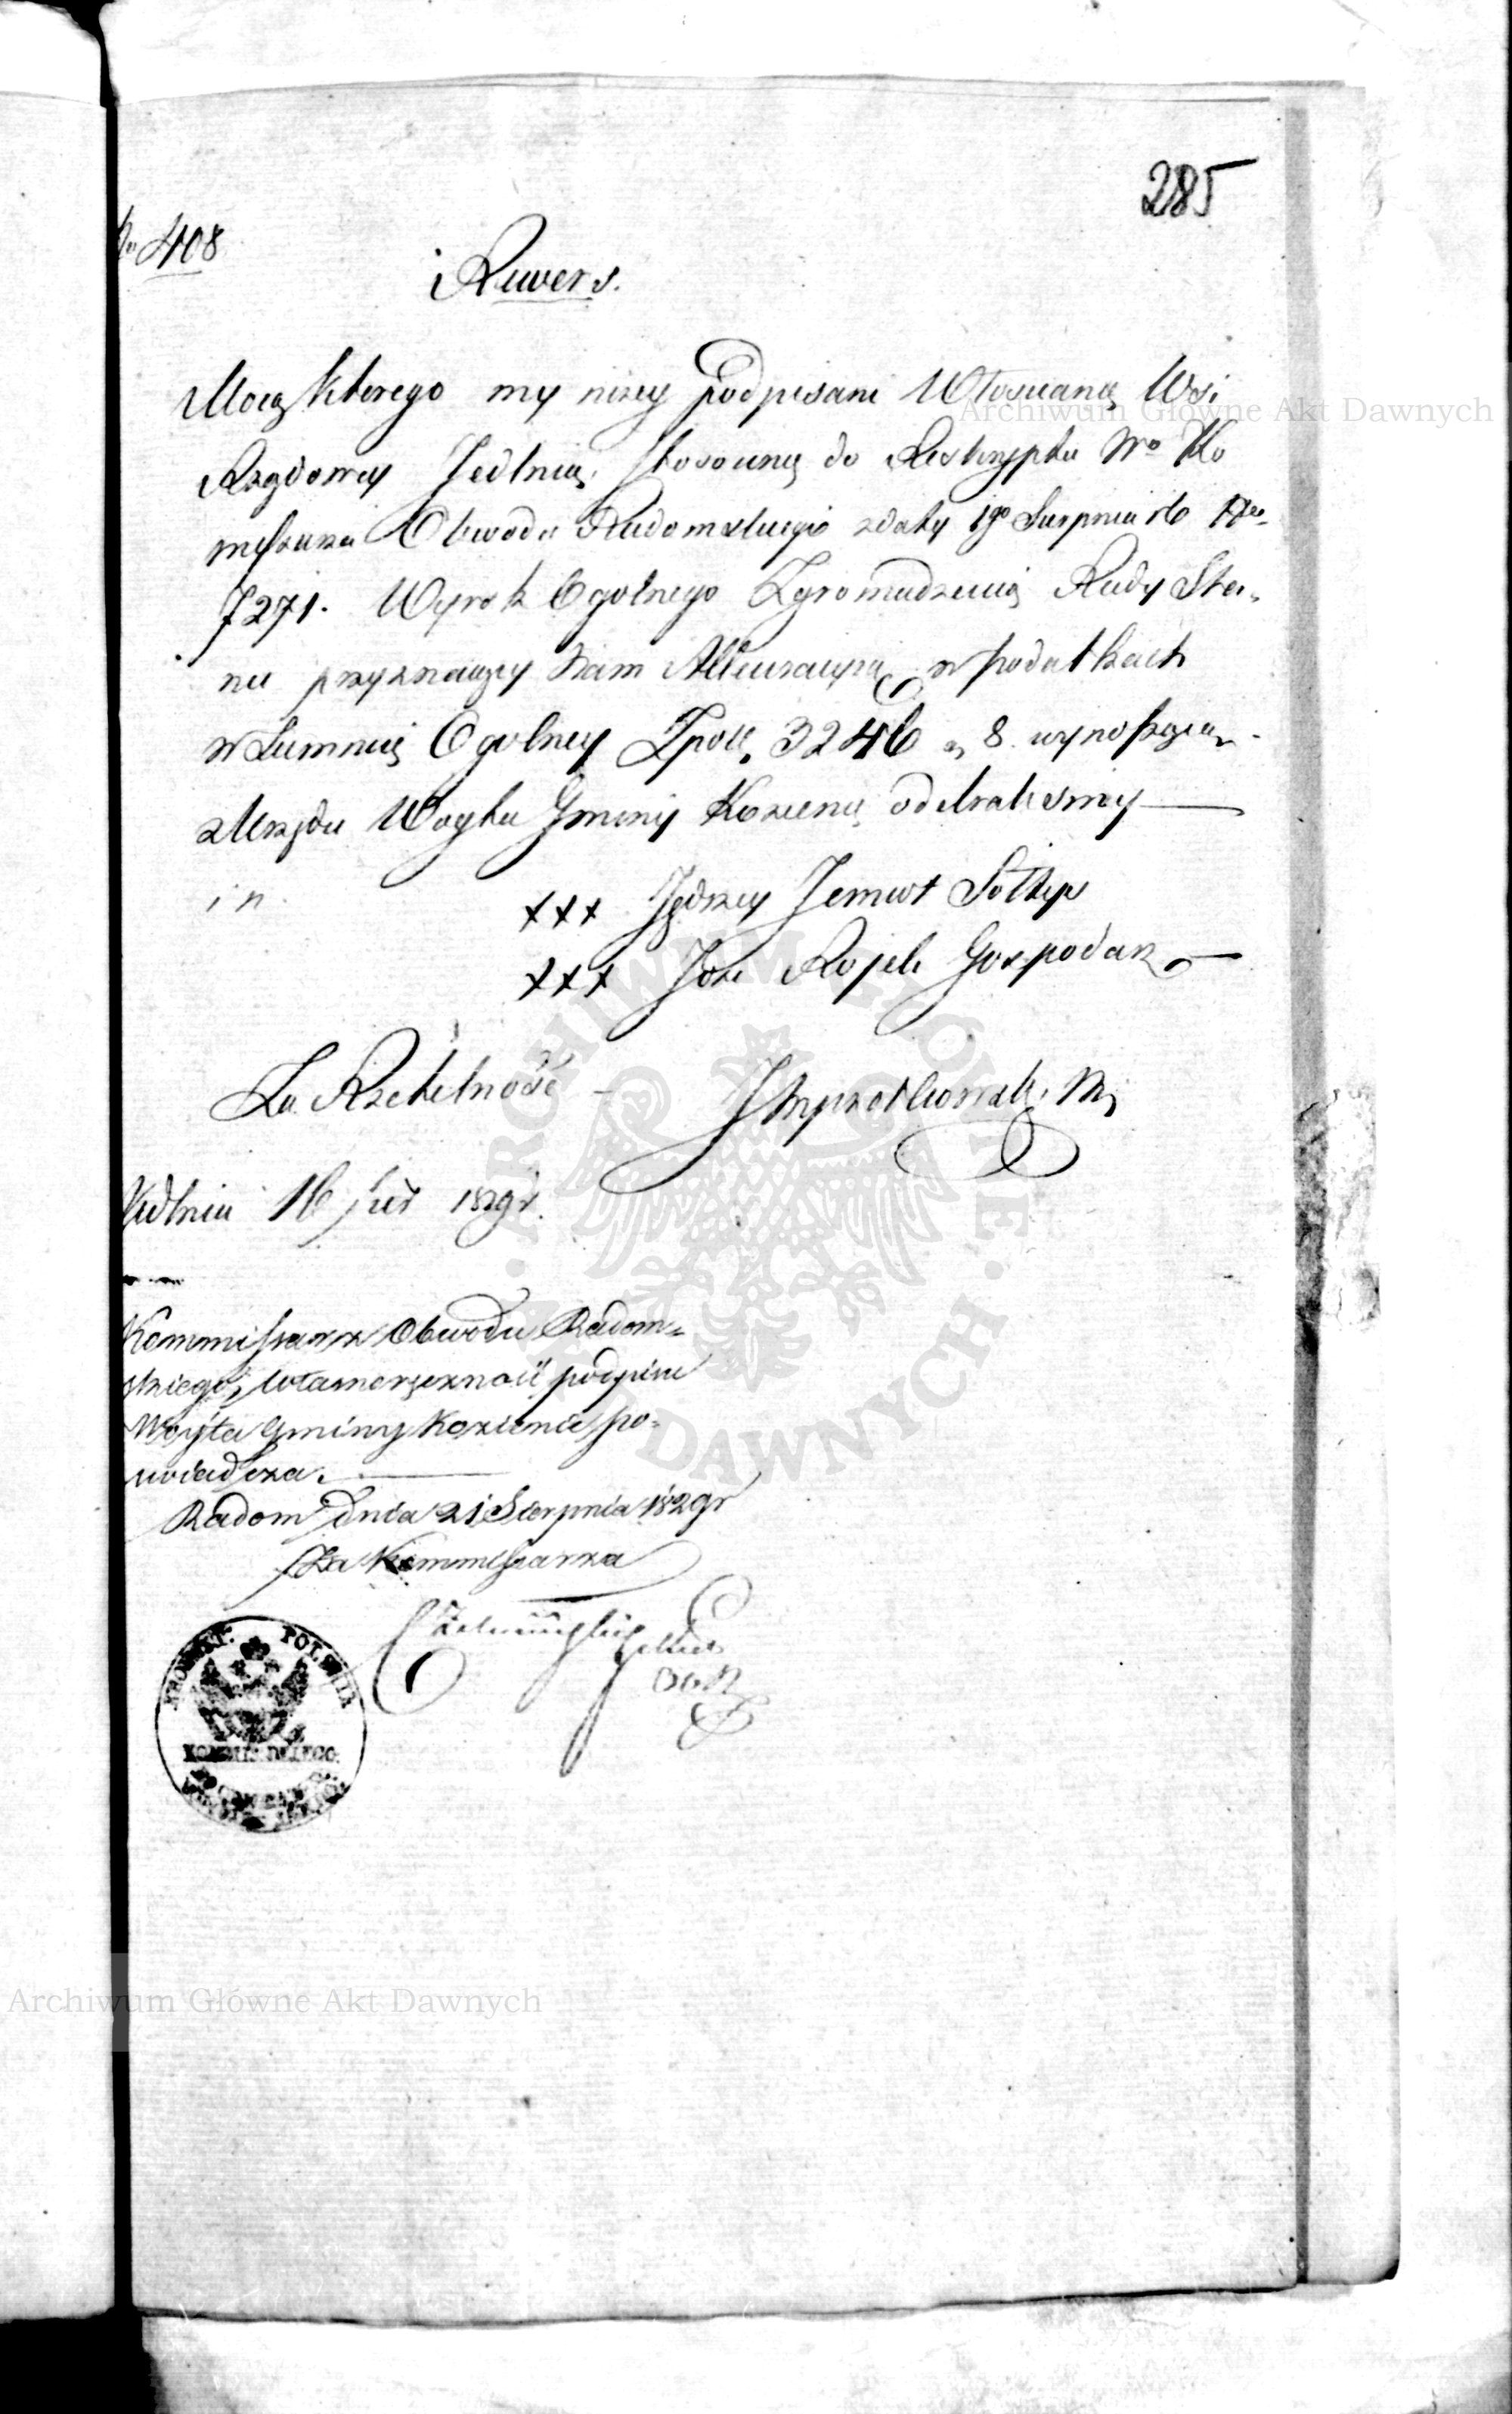 285
No 408
Rewers.
Mocą ktorego my niżey podpisani Włoscianie Wsi
Rządowey Jedlnia, stosownie do Reskryptu Wo Ko
missarza Obwodu Radomskiego z daty 19o Sierpnia rb Nro
7271. Wyrok Ogolnego Zgromadzenia Rady Sta-
nu przyznaiący Nam w podatkach
w Summie Ogolney Zpoll. 3246 8 wynoszącą
z Urzędu Woyta Gminy Kozienic odebraliśmy
xxx Jędrzey Jemioł Sołtys
xxx Joze Rojek Gospodarz
Za Rzetelność
Jedlnia 16 1829 r.
Kommissarz Obwodu Radom-
skiego, własnoręczność podpisu
Woyta Gminy Kozienic po-
swiadcza.
Radom dnia 21 Sierpnia 1829 r
Za Kommissarza
KROLEST. POLSKIE
Archiwum Główne Akt Dawnych
Archiwum Główne Akt Dawnych
ARCHIWUM GŁÓWNE AKT DAWNYCH